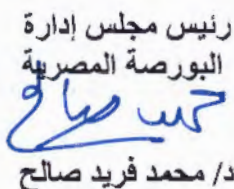 رئيس مجلس إدارة
البورصة المصرية
د/ محمد فريد صالح